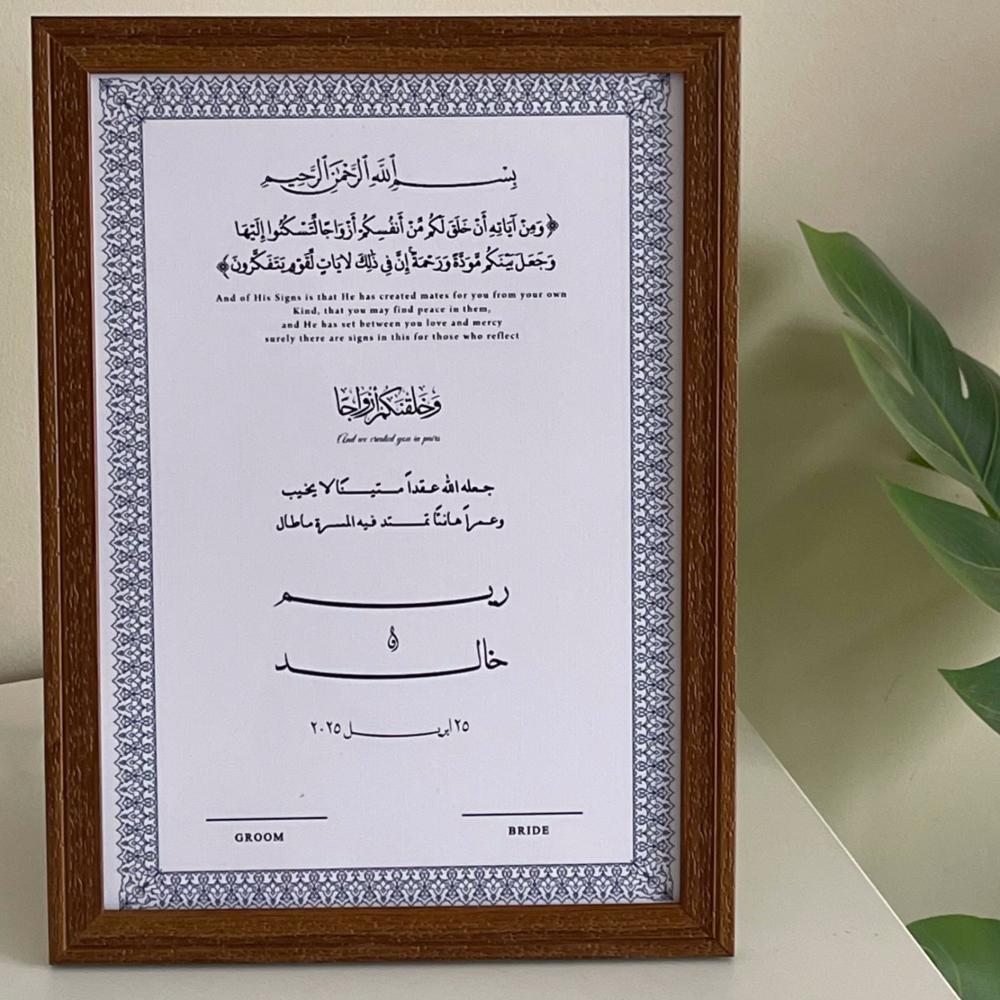 بِسْـــمِ ٱللَّهِ ٱلرَّحْمَٰنِ ٱلرَّحِيمِ
﴿ وَمِنْ آيَاتِهِ أَنْ خَلَقَ لَكُم مِّنْ أَنفُسِكُمْ أَزْوَاجًا لِّتَسْكُنُوا إِلَيْهَا
وَجَعَلَ بَيْنَكُم مَّوَدَّةً وَرَحْمَةً إِنَّ فِي ذَٰلِكَ لَآيَاتٍ لِّقَوْمٍ يَتَفَكَّرُونَ ﴾
And of His Signs is that He has created mates for you from your own
Kind, that you may find peace in them,
and He has set between you love and mercy
surely there are signs in this for those who reflect
وَخَلَقْنَكُمْ أَزْوَاجًا
And we created you in pairs
جعله الله عقداً متينًا لا يخيب
وعمراً هانئًا تمتد فيه المسرة ما طال
ريم
و
خالد
٢٥ ابريل ٢٠٢٥
GROOM
BRIDE